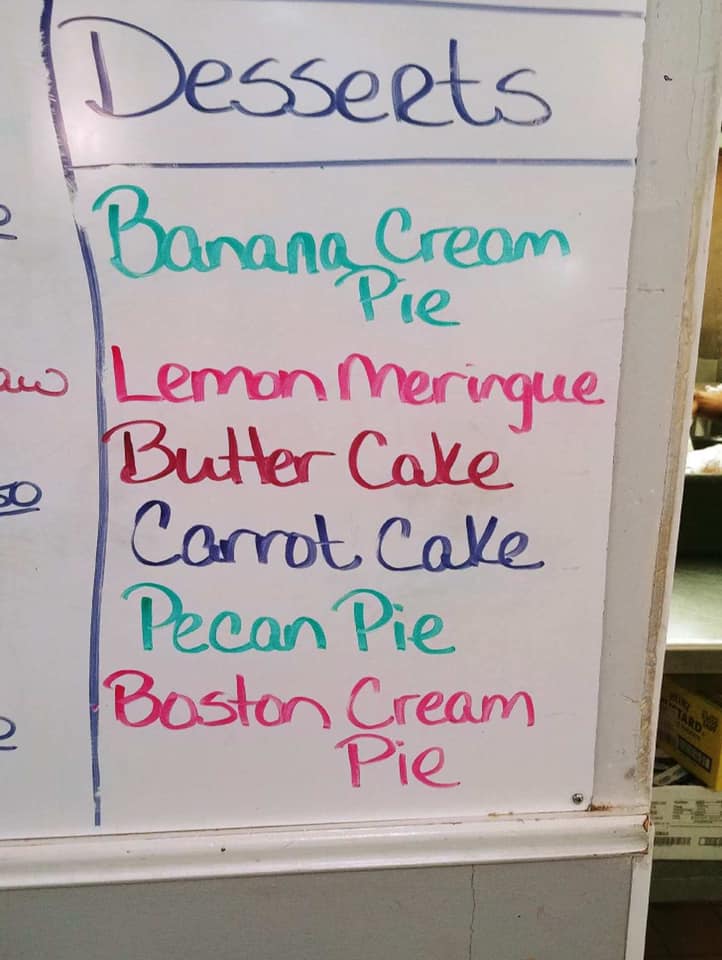 Desserts
Banana Cream
Pie
Lemon Meringue
Butter Cake
Carrot Cake
Pecan Pie
Boston Cream
Pie
50
TARD